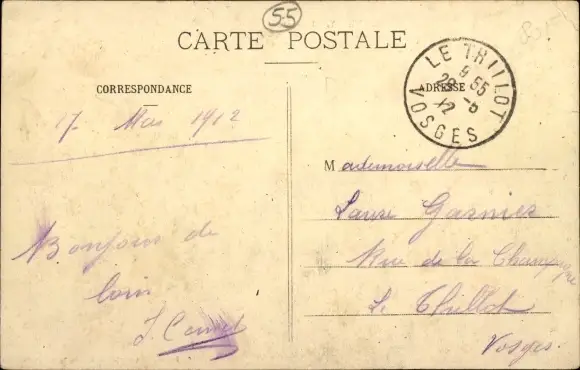 55
CARTE POSTALE
CORRESPONDANCE
ADRESSE
LE THILLOT
9 55
29 -5
12
VOSGES
17 Mai 1912
Bonjour de
loin
Mademoiselle
Garnier
Rue de la Champagne
Le Thillot
Vosges.